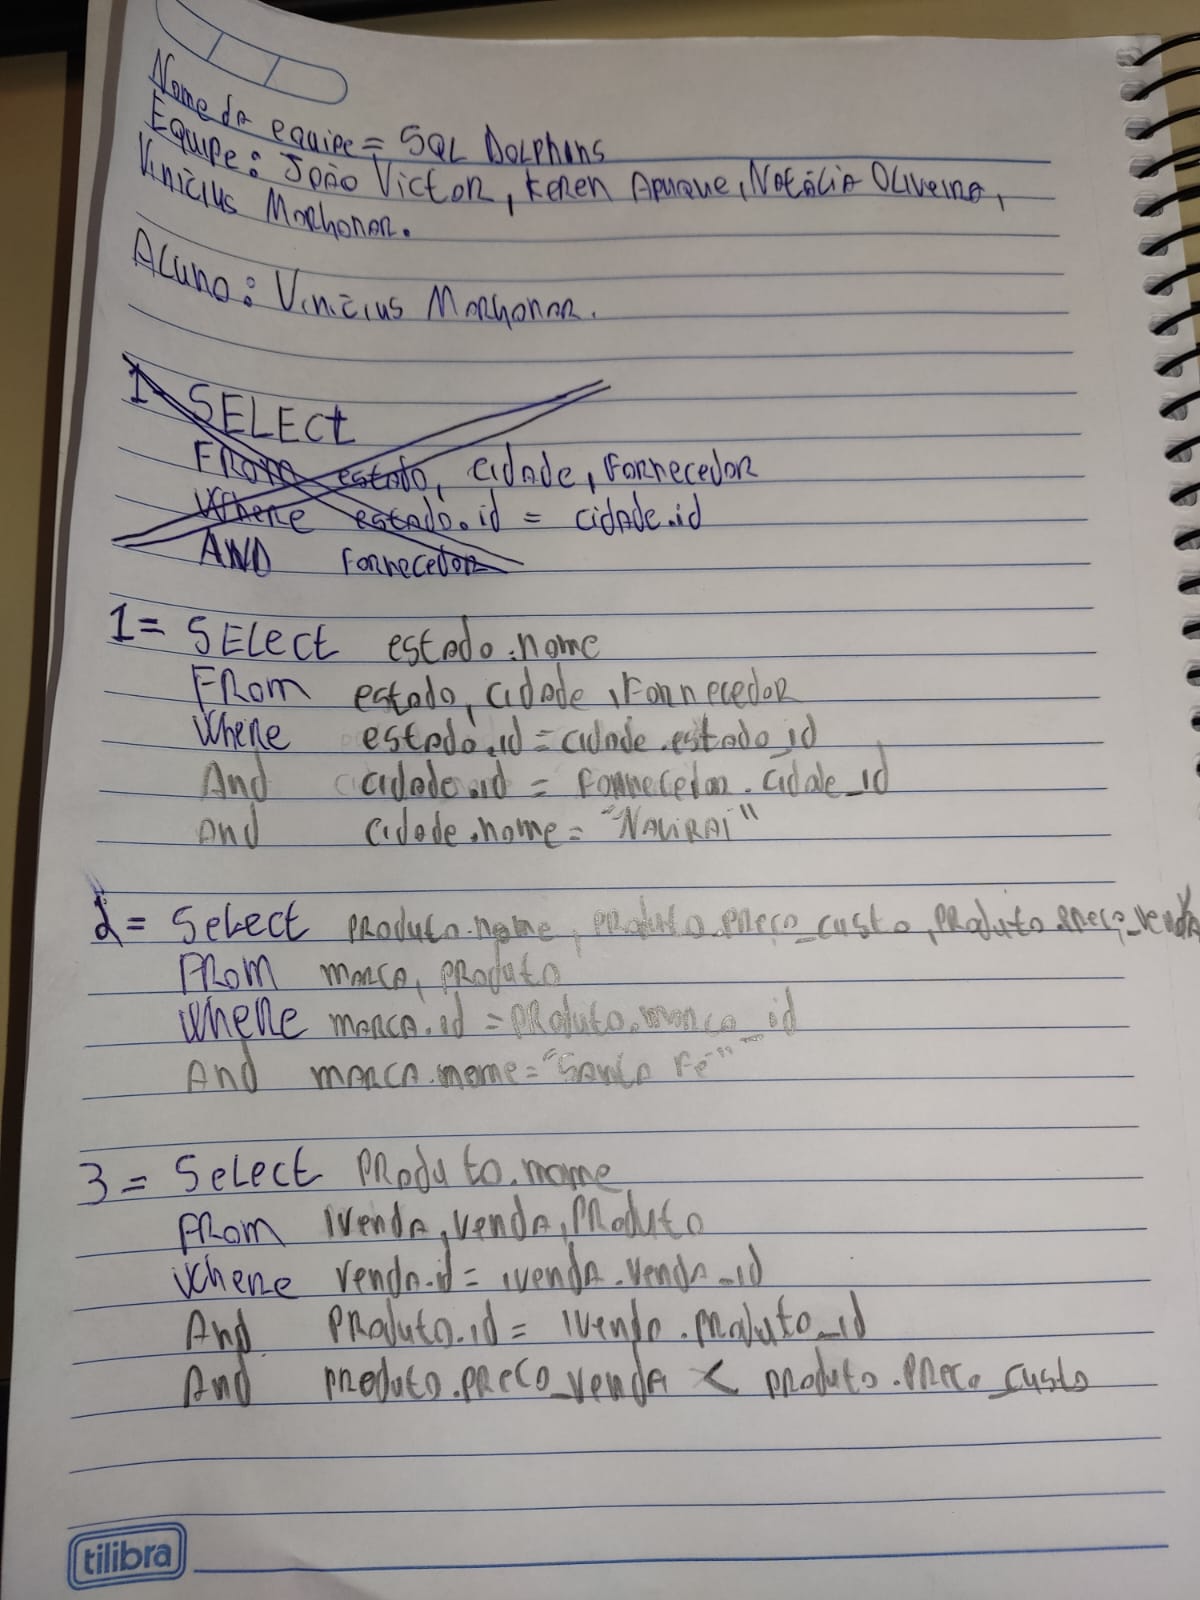 Nome da equipe = SQL Dolphins
Equipe: João Victor, Keren Apuque, Natália Oliveira,
Vinícius Marchonar.
Aluno: Vinícius Marchonar.
1- SELECt
FROM estado, cidade, Fornecedor
Where estado.id = cidade.id
AND Fornecedor
1= SELect estado.nome
FROM estado, cidade, Fornecedor
Where estado.id = cidade.estado_id
And cidade.id = fornecedor.cidade_id
and cidade.nome = "NAVIRAI"
2= Select produto.nome, produto.preco_custo, produto.preco_venda
From marca, produto
where marca.id = produto.marca_id
And marca.nome = "Santa Fé"
3= Select Produto.nome
From ivenda, venda, Produto
where venda.id = ivenda.venda_id
And Produto.id = ivenda.produto_id
And produto.preco_venda < produto.preco_custo
tilibra